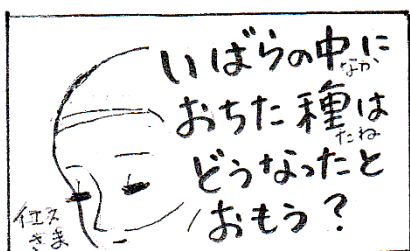 いばらの中に
なか
おちた種は
たね
どうなったと
おもう？
イエス
さま